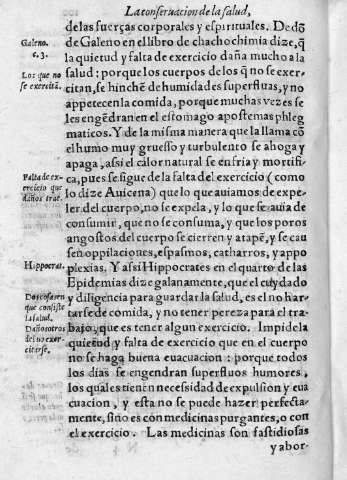 La conseruacion de la salud,
de las fuerças corporales y espirituales. De dõ
de Galeno en el libro de chacho chimia dize, q̃
la quietud y falta de exercicio daña mucho a la
salud: porque los cuerpos de los q̃ no se exer-
citan, se hinchẽ de humidades superfluas, y no
appetecen la comida, porque muchas vezes se
les engẽdran en el estomago apostemas phleg
maticos. Y de la misma manera que la llama cõ
el humo muy gruesso y turbulento se ahoga y
apaga, assi el calor natural se enfria y mortifi-
ca, pues se sigue de la falta del exercicio (como
lo dize Auicena) que lo que auiamos de expe-
ler del cuerpo, no se expela, y lo que se auia de
consumir, que no se consuma, y que los poros
angostos del cuerpo se cierren y atapẽ, y se cau
señ oppilaciones, espasmos, catharros, y appo
plexias. Y assi Hippocrates en el quarto de las
Epidemias dize galanamente, que el cuydado
y diligencia para guardar la salud, es el no har-
tarse de comida, y no tener pereza para el tra-
bajo, que es tener algun exercicio. Impide la
quietud y falta de exercicio que en el cuerpo
no se haga buena euacuacion: porque todos
los dias se engendran superfluos humores,
los quales tienen necessidad de expulsion y eua
cuacion, y esta no se puede hazer perfecta-
mente, sino es con medicinas purgantes, o con
el exercicio. Las medicinas son fastidiosas
y abor-
Galeno.
c. 3.
Los que no
se exercitã.
Falta de ex-
ercicio que
daños trae.
Hippocrat.
Dos cosas en
que consiste
la salud.
Daños otros
del no exer-
citarse.